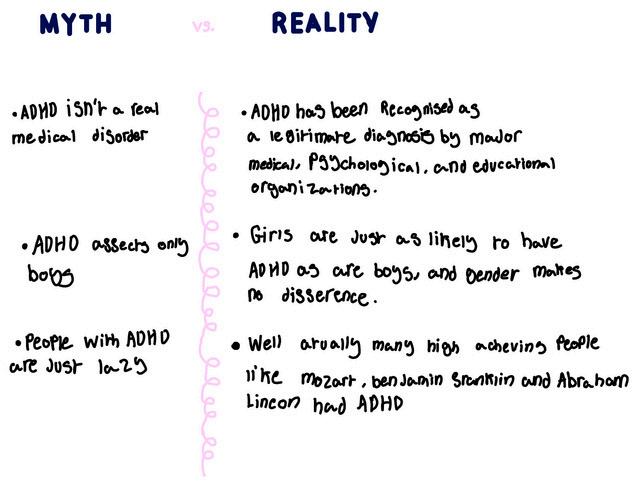 MYTH vs. REALITY
•ADHD isn't a real
medical disorder
•ADHD has been Recognised as
a legitimate diagnosis by major
medical, Psychological, and educational
organizations.
•ADHD affects only
boys
• Girls are Just as likely to have
ADHD as are boys, and Gender makes
no difference.
•People with ADHD
are Just lazy
• Well atually many high acheving People
like mozart, benjamin franklin and Abraham
Lincon had ADHD